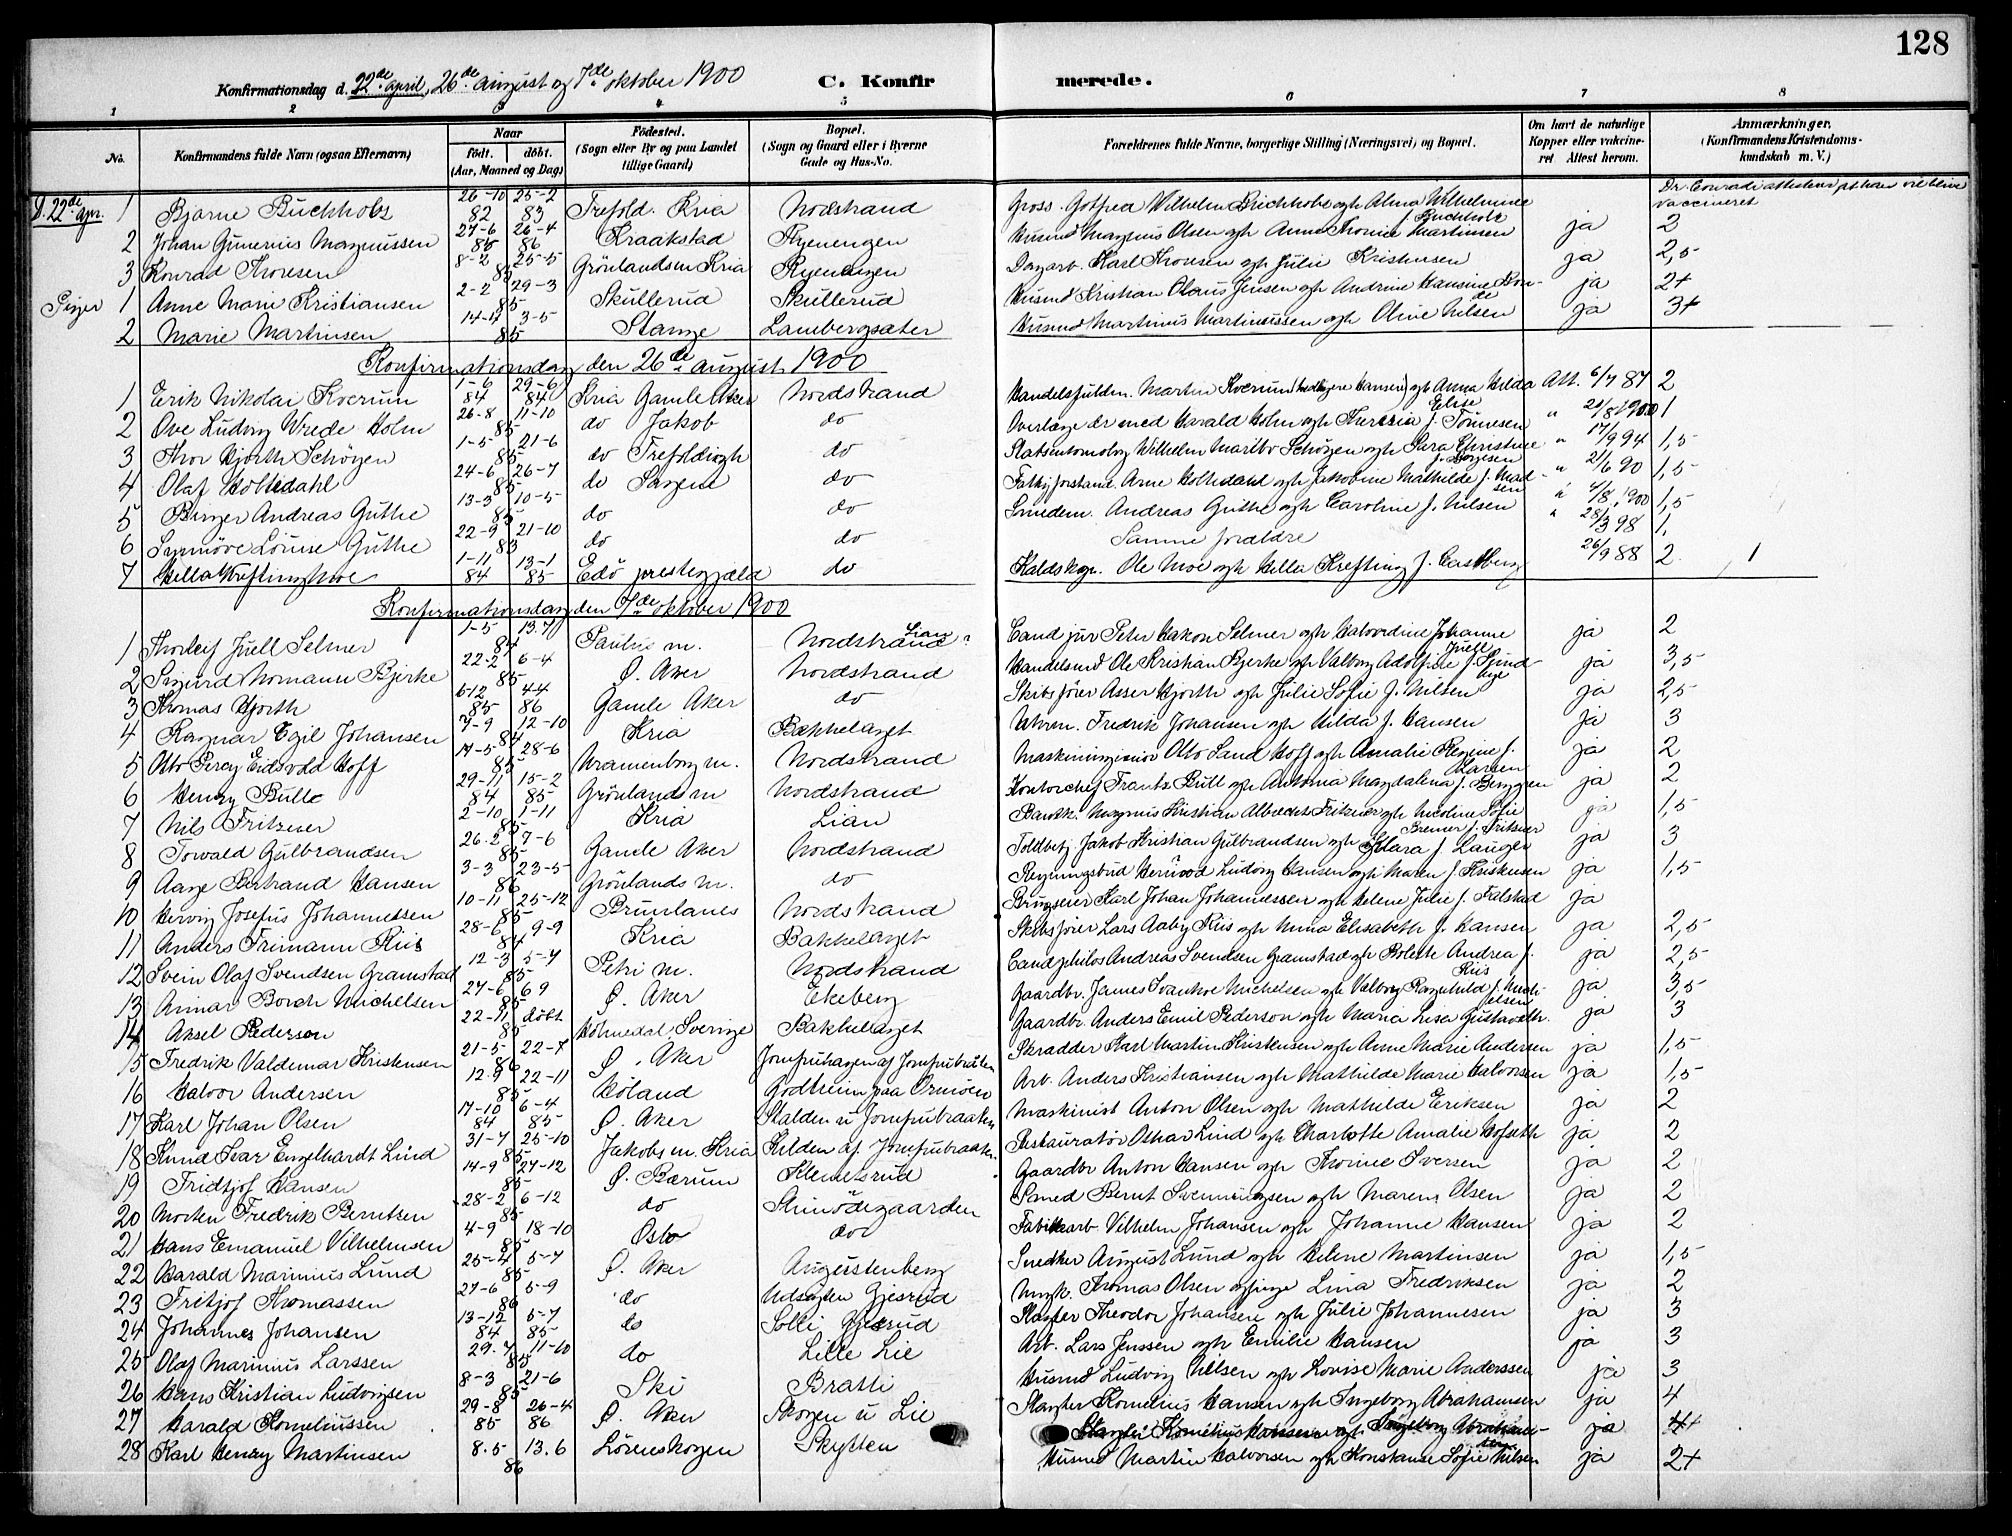 128
Konfirmationsdag d. 22de april, 26de august og 7de oktober 1900 C. Konfirmerede.
1 2 3 4 5 6 7 8
No. Konfirmandens fulde Navn (ogsaa Efternavn) Naar født. døbt. (Aar, Maaned og Dag) Fødested. (Sogn eller By og paa Landet tillige Gaard) Bopæl. (Sogn og Gaard eller i Byerne Gade og Hus-No.) Forældrenes fulde Navne, borgerlige Stilling (Næringsvei) og Bopæl. Om havt de naturlige Kopper eller vakcineret Attest herom. Anmærkninger. (Konfirmandens Kristendomskundskab m. V.)
D. 22de apr. 1 Bjarne Buchholz 26-10 82 25-2 83 Trefold. Kria Nordstrand Gross. Gotfred Wilhelm Buchholz og h Alma Wilhelmine Buchholz Dr. Conradi vaccineret
2 Johan Gunerius Magnussen 27-6 85 26-4 86 Kraakstad Ryenengen Husmd Magnus Olsen og h Anne Thonie Martinsen ja 2
3 Konrad Thoresen 8-2 25-5 85 Grønlandsm Kria Ryenengen Dagarb. Karl Thoresen og h Julie Kristensen ja 2,5
Piger 1 Anne Marie Kristiansen 2-2 29-3 85 Skullerud Skullerud Husmd Kristian Olaus Jensen og h Andrine Hansine ja 2+
2 Marie Martinsen 14-4 3-5 85 Stange Lambergsæter Husmd Martinus Martinussen og h Oline Nilsen ja 3+
Konfirmationsdag den 26de august 1900
1 Erik Nikolai Kverum 1-6 84 29-6 84 Kria Gamle Aker Nordstrand Handelsfuldm. Martin Kverum (tidligere Hansen) og h Anna Hilda Elise Att. 6/7 87 2
2 Ove Ludvig Wrede Holm 26-8 11-10 85 do Jakob do Overlæge dr med Harald Holm og h Therezia f. Tønnesen " 21/8 1900 1
3 Thor Hjorth Schøyen 1-5 21-6 85 do Trefoldigh do Statsentomolog Wilhelm Maribo Schøyen og h Sara Christine f. Børgesen " 17/9 94 1,5
4 Olaf Holtedahl 24-6 26-7 85 do Sagene do Arne Holtedahl og h Jakobine Mathilde f. Madsen " 21/6 90 1,5
5 Birger Andreas Guthe 13-3 10-5 85 do do Smedem. Andreas Guthe og h Caroline f. Nilsen " 4/8 1900 1,5
6 Synnøve Louise Guthe 22-9 21-10 83 do do Samme forældre " 28/3 98 1,
7 Hella Krefting Moe 1-11 84 13-1 85 Edø prestegjæld do Ole Moe og h Hella Krefting f. Castberg 26/9 88 2 1
Konfirmationsdag den 7de oktober 1900
1 Thorleif Juell Selmer 1-5 13.7 84 Paulus m. Nordstrand Lian Cand jur Peter Hakon Selmer og h Halvordine Johanne Juell ja 2
2 Sigurd Normann Bjerke 22-2 6-4 85 Ø. Aker Nordstrand Handelsmd Ole Kristian Bjerke og h Valborg Adolfine f. ja 3,5
3 Thomas Hjorth 6-12 85 4-4 86 Gamle Aker do Skibsfører Asser Hjorth og h Julie Sofie f. Nilsen ja 2,5
4 Ragnar Egil Johansen 7-9 12-10 84 Kria Bækkelaget Fredrik Johansen og h Hilda f. Hansen ja 3
5 Otto Percy Eidsvold Hoff 17-5 28-6 85 Uranienborg m. Nordstrand Maskiningeniør Otto Sand Hoff og h Amalie Regine f. Larsen ja 2
6 Henry Bull 29-11 84 15-2 85 Grønlands m Nordstrand Kontorchef Frants Bull og h Antonia Magdalena f. Berggren ja 2
7 Nils Fritzner 2-10 1-11 85 Kria Lian Magnus Kristian Albrecht Fritzner og h Nicoline Sofie Bremer f. Fritzner ja 1,5
8 Torvald Gulbrandsen 26.2 7-6 85 Gamle Aker Nordstrand Toldbetj Jakob Kristian Gulbrandsen og h Klara f Lange ja 3
9 Aage Bertrand Hansen 3-3 23-5 86 Grønlands m. do Regningsbud Ludvig Hansen og h Maren f. Kristensen ja 1,5
10 Herving Josefus Johannessen 10-11 25-12 85 Brunlanes Nordstrand Brugseier Karl Johan Johannessen og h Helene Julie f. Falstad ja
11 Anders Frimann Riis 28-6 9-9 84 Kria Bækkelaget Skibsfører Lars Aaby Riis og h Anna Elisabeth f. Hansen ja 2,5
12 Svein Olaf Svendsen Gramstad 12-3 5-7 85 Petri m. Nordstrand Cand philos Andreas Svendsen Gramstad og h Bolette Andrea f. Riis ja 2,5
13 Annar Borch Michelsen 27-6 6 9 85 Ø. Aker Ekeberg Gaardbr. James Ivanhoe Michelsen og h Valborg Ragnhild f. Michelsen ja 3,5
14 Aksel Pederson 22-11 døbt 85 Holmedal, Sverige Bækkelaget Gaardbr. Anders Emil Pederson og h Maria Lisa Gustavdtr. ja 3
15 Fredrik Valdemar Kristensen 21-5 22-7 86 Ø. Aker Jomfruhagen af Jomfrubraaten Skradder Karl Martin Kristensen og h Anne Marie Andersen ja 1,5
16 Halvor Andersen 12.9 22-11 85 Høland Godtheim paa Ormøen Arb. Anders Kristiansen og h Mathilde Marie Halvorsen ja 1,5
17 Karl Johan Olsen 17-10 84 6-4 85 Ø. Aker Stalden u Jomfrubraaten Maskinist Anton Olsen og h Mathilde Eriksen ja 2
18 Knud Ivar Engelhardt Lind 31-7 25-10 85 Jakobs m. Kria Kilden af Jomfrubraaten Restauratør Othar Lind og h Charlotte Amalie Hofseth ja 2
19 Fridtjof Hansen 14-9 27-12 85 Ø. Bærum Klemetsrud Gaardbr Anton Hansen og h Thorine Iversen ja 2
20 Morten Fredrik Berntsen 28-2 6-12 85 do Stubødegaarden Smed Bernt Svenningsen og h Maren Olsen ja 2
21 Hans Emanuel Vilhelmsen 4-9 18-10 85 Oslo do Fabrikarb Vilhelm Johansen og h Johanne Hansen ja 2
22 Harald Marinius Lund 25-4 5-7 85 Ø. Aker Augustenberg Snedker August Lund og h Helene Martinsen ja 1,5
23 Fritjof Thomassen 27-6 5-9 86 do Udsigten Gjersrud Thomas Olsen og pige Lina Fredriksen ja 2
24 Johannes Johansen 13-12 84 5-7 85 do Solli Gjersrud Slagter Theodor Johansen og h Julie Johannesen ja 3
25 Olaf Marinius Larssen 29.7 11-10 85 do Lille Lie Arb. Lars Jenssen og h Emilie Hansen ja 3
26 Hans Kristian Ludvigsen 8-3 21-6 85 Ski Bratli Husmd Ludvig Nilsen og h Lovise Marie Anderssen ja 3
27 Harald Korneliussen 29-8 85 26-4 86 Ø. Aker Skogen u Lie Slagter Kornelius Hansen og h Ingeborg Abrahamsen ja 4
Slagter Kornelius Hansen og h Ingeborg Abrahamsen ja 4+
28 Karl Henry Martinsen 8.5 13.6 86 Lørenskogen Skytten Husmd Martin Halvorsen og h Konstanse Sofie Nilsen ja 2+